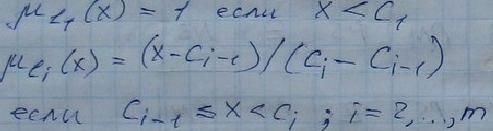 μ_{L_1}(x) = 1 если x < C_1
μ_{L_i}(x) = (x - C_{i-1}) / (C_i - C_{i-1})
если C_{i-1} ≤ x < C_i ; i = 2, ..., m